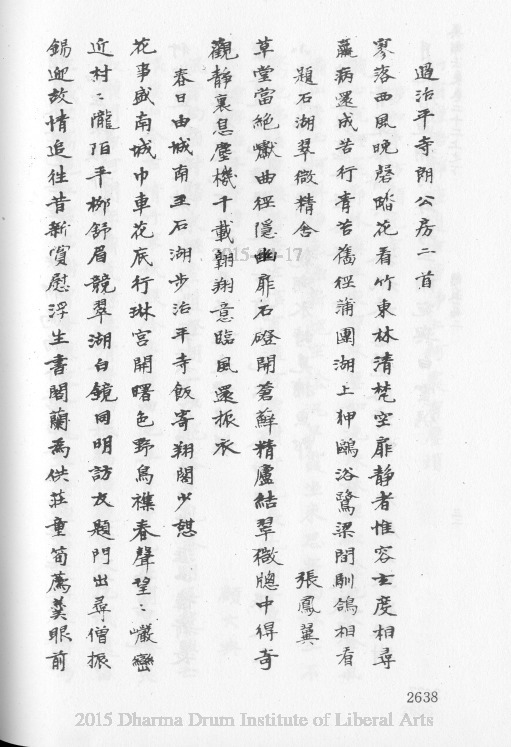 過治平寺朗公房二首
寥落西風晚磬踏花看竹東林清梵空扉靜者惟容玄度相尋
薙病還成苦行青苔舊徑蒲團湖上狎鷗浴鷺梁間馴鴿相看
題石湖翠微精舍 張鳳翼
草堂當絶巘曲徑隱幽扉石磴開蒼蘚精廬結翠微牕中得奇
觀靜裏息塵機千載翺翔意臨風還振衣
春日由城南至石湖步治平寺飯寄翔閣少憩
花事盛南城巾車花底行琳宮開曙色野鳥襍春聲望〻巗巒
近村〻隴陌平栁舒眉競翠湖白鏡同明訪友題門出尋僧振
錫迎故情追徃昔新賞慰浮生書閣蘭爲供荘童筍薦羮眼前
2638
2015-04-17
2015 Dharma Drum Institute of Liberal Arts